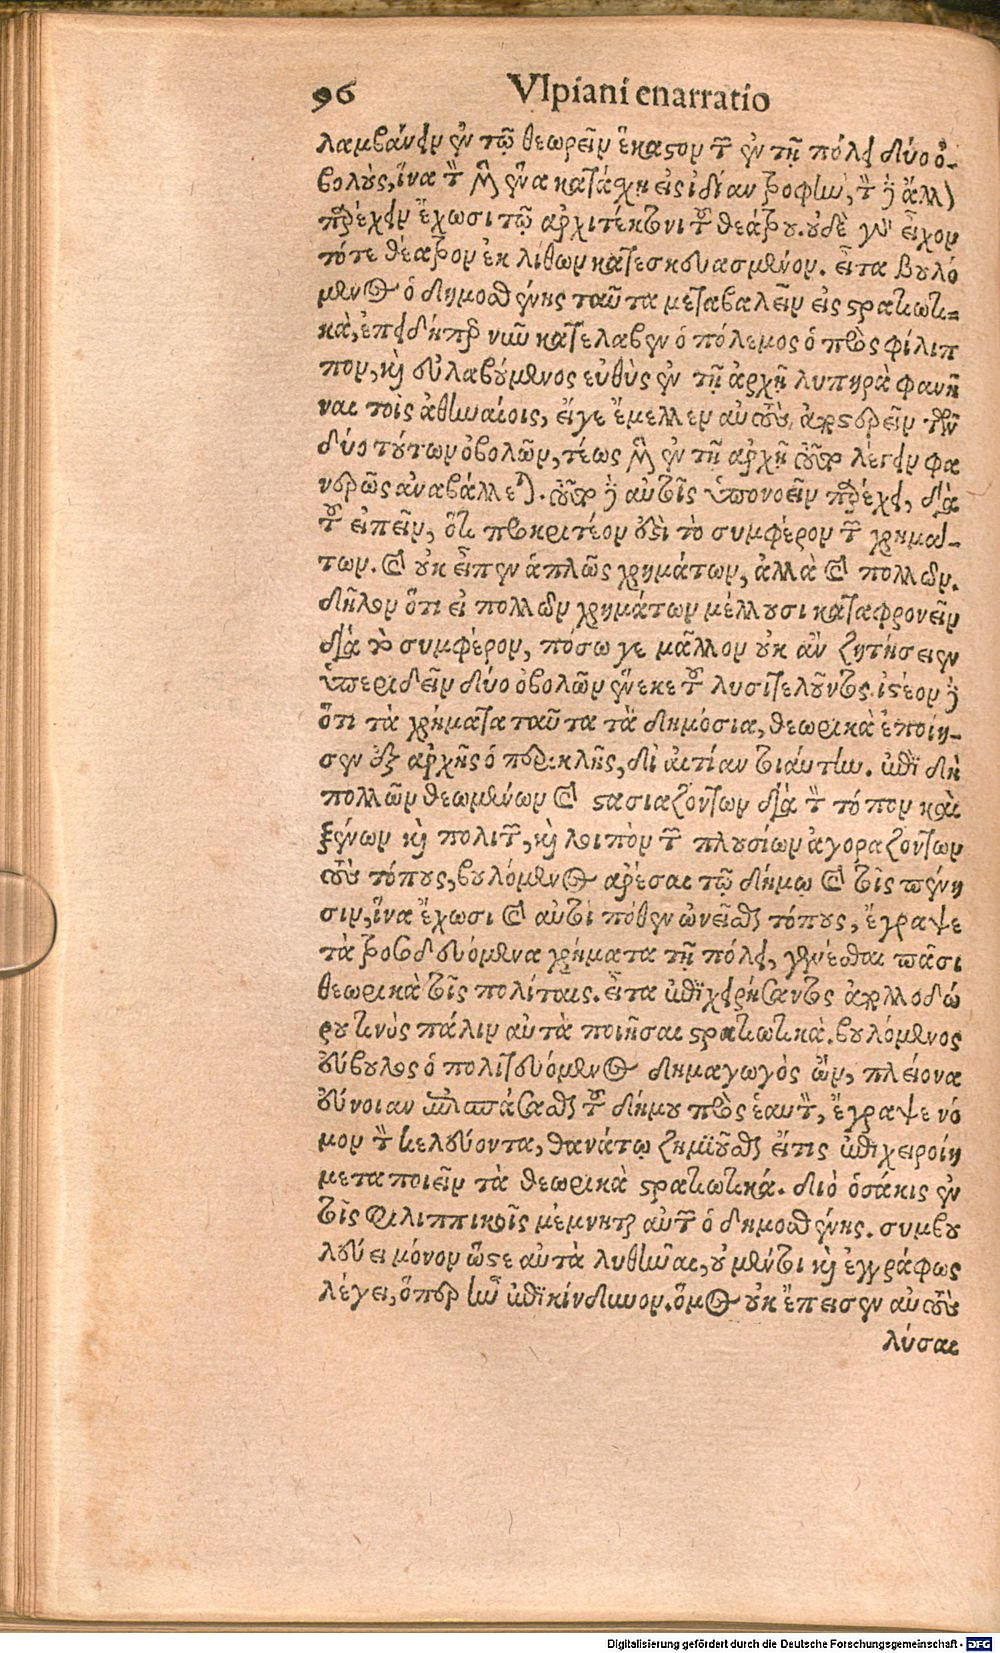 96 Vlpiani enarratio
λαμβάνειν ἐν τῷ θεωρεῖν ἕκαστον τῶν ἐν τῇ πόλει δύο ὀ-
βολοὺς, ἵνα τὸν μὲν ἕνα κατάσχῃ εἰς ἰδίαν τροφὴν, τὸν δὲ ἄλλον
παρέχειν ἔχωσι τῷ ἀρχιτέκτονι τοῦ θεάτρου. οὐδὲ γὰρ εἶχον
τότε θέατρον ἐκ λίθων κατεσκευασμένον. εἶτα βουλό
μενος ὁ δημοσθένης ταῦτα μεταβαλεῖν εἰς στρατιωτι-
κὰ, ἐπειδήπερ νῦν κατέλαβεν ὁ πόλεμος ὁ πρὸς φίλιπ
πον, καὶ εὐλαβούμενος εὐθὺς ἐν τῇ ἀρχῇ λυπηρὰ φανῆ
ναι τοῖς ἀθηναίοις, εἴγε ἔμελλεν αὐτοὺς ἀποστερεῖν τῶν
δύο τούτων ὀβολῶν, τέως μὲν ἐν τῇ ἀρχῇ τοῦτο λέγειν φα
νερῶς ἀναβάλλεται. τοῦτο δὲ αὐτοῖς ὑπονοεῖν παρέχει, διὰ
τοῦ εἰπεῖν, ὅτι προκριτέον ἐστὶ τὸ συμφέρον τῶν χρημά-
των. καὶ οὐκ εἶπεν ἁπλῶς χρημάτων, ἀλλὰ καὶ πολλῶν.
δῆλον ὅτι εἰ πολλῶν χρημάτων μέλλουσι καταφρονεῖν
διὰ τὸ συμφέρον, πόσω γε μᾶλλον οὐκ ἂν ζητήσειεν
ὑπεριδεῖν δύο ὀβολῶν ἕνεκε τοῦ λυσιτελοῦντος. ἰστέον δὲ
ὅτι τὰ χρήματα ταῦτα τὰ δημόσια, θεωρικὰ ἐποίη-
σεν ἐξ ἀρχῆς ὁ περικλῆς, δι αἰτίαν τοιαύτην. ἐπειδὴ
πολλῶν θεωμένων καὶ στασιαζόντων διὰ τὸν τόπον καὶ
ξένων καὶ πολιτῶν, καὶ λοιπὸν τῶν πλουσίων ἀγοραζόντων
τοὺς τόπους, βουλόμενος ἀρέσαι τῷ δήμῳ καὶ τοῖς πένη
σιν, ἵνα ἔχωσι καὶ αὐτοὶ πόθεν ὠνεῖσθαι τόπους, ἔγραψε
τὰ προσοδευόμενα χρήματα τῇ πόλει, γενέσθαι πᾶσι
θεωρικὰ τοῖς πολίταις. εἶτα ἐπιχειρήσαντος ἀπολλοδώ
ρου τινὸς πάλιν αὐτὰ ποιῆσαι στρατιωτικὰ. βουλόμενος
εὔβουλος ὁ πολιτευόμενος δημαγωγὸς ὢν, πλείονα
εὔνοιαν ἐπισπάσασθαι τοῦ δήμου πρὸς ἑαυτὸν, ἔγραψε νό
μον τὸν κελεύοντα, θανάτῳ ζημιοῦσθαι εἴτις ἐπιχειροίη
μεταποιεῖν τὰ θεωρικὰ στρατιωτικά. διὸ ὁσάκις ἐν
τοῖς Φιλιππικοῖς μέμνηται αὐτῶν ὁ δημοσθένης. συμβου
λεύει μόνον ὥστε αὐτὰ λυθῆναι, οὐ μέντοι καὶ ἐγγράφως
λέγει, ὅπερ ἦν ἐπικίνδυνον. ὅμως οὐκ ἔπεισεν αὐτοὺς
λύσαι
Digitalisierung gefördert durch die Deutsche Forschungsgemeinschaft - DFG